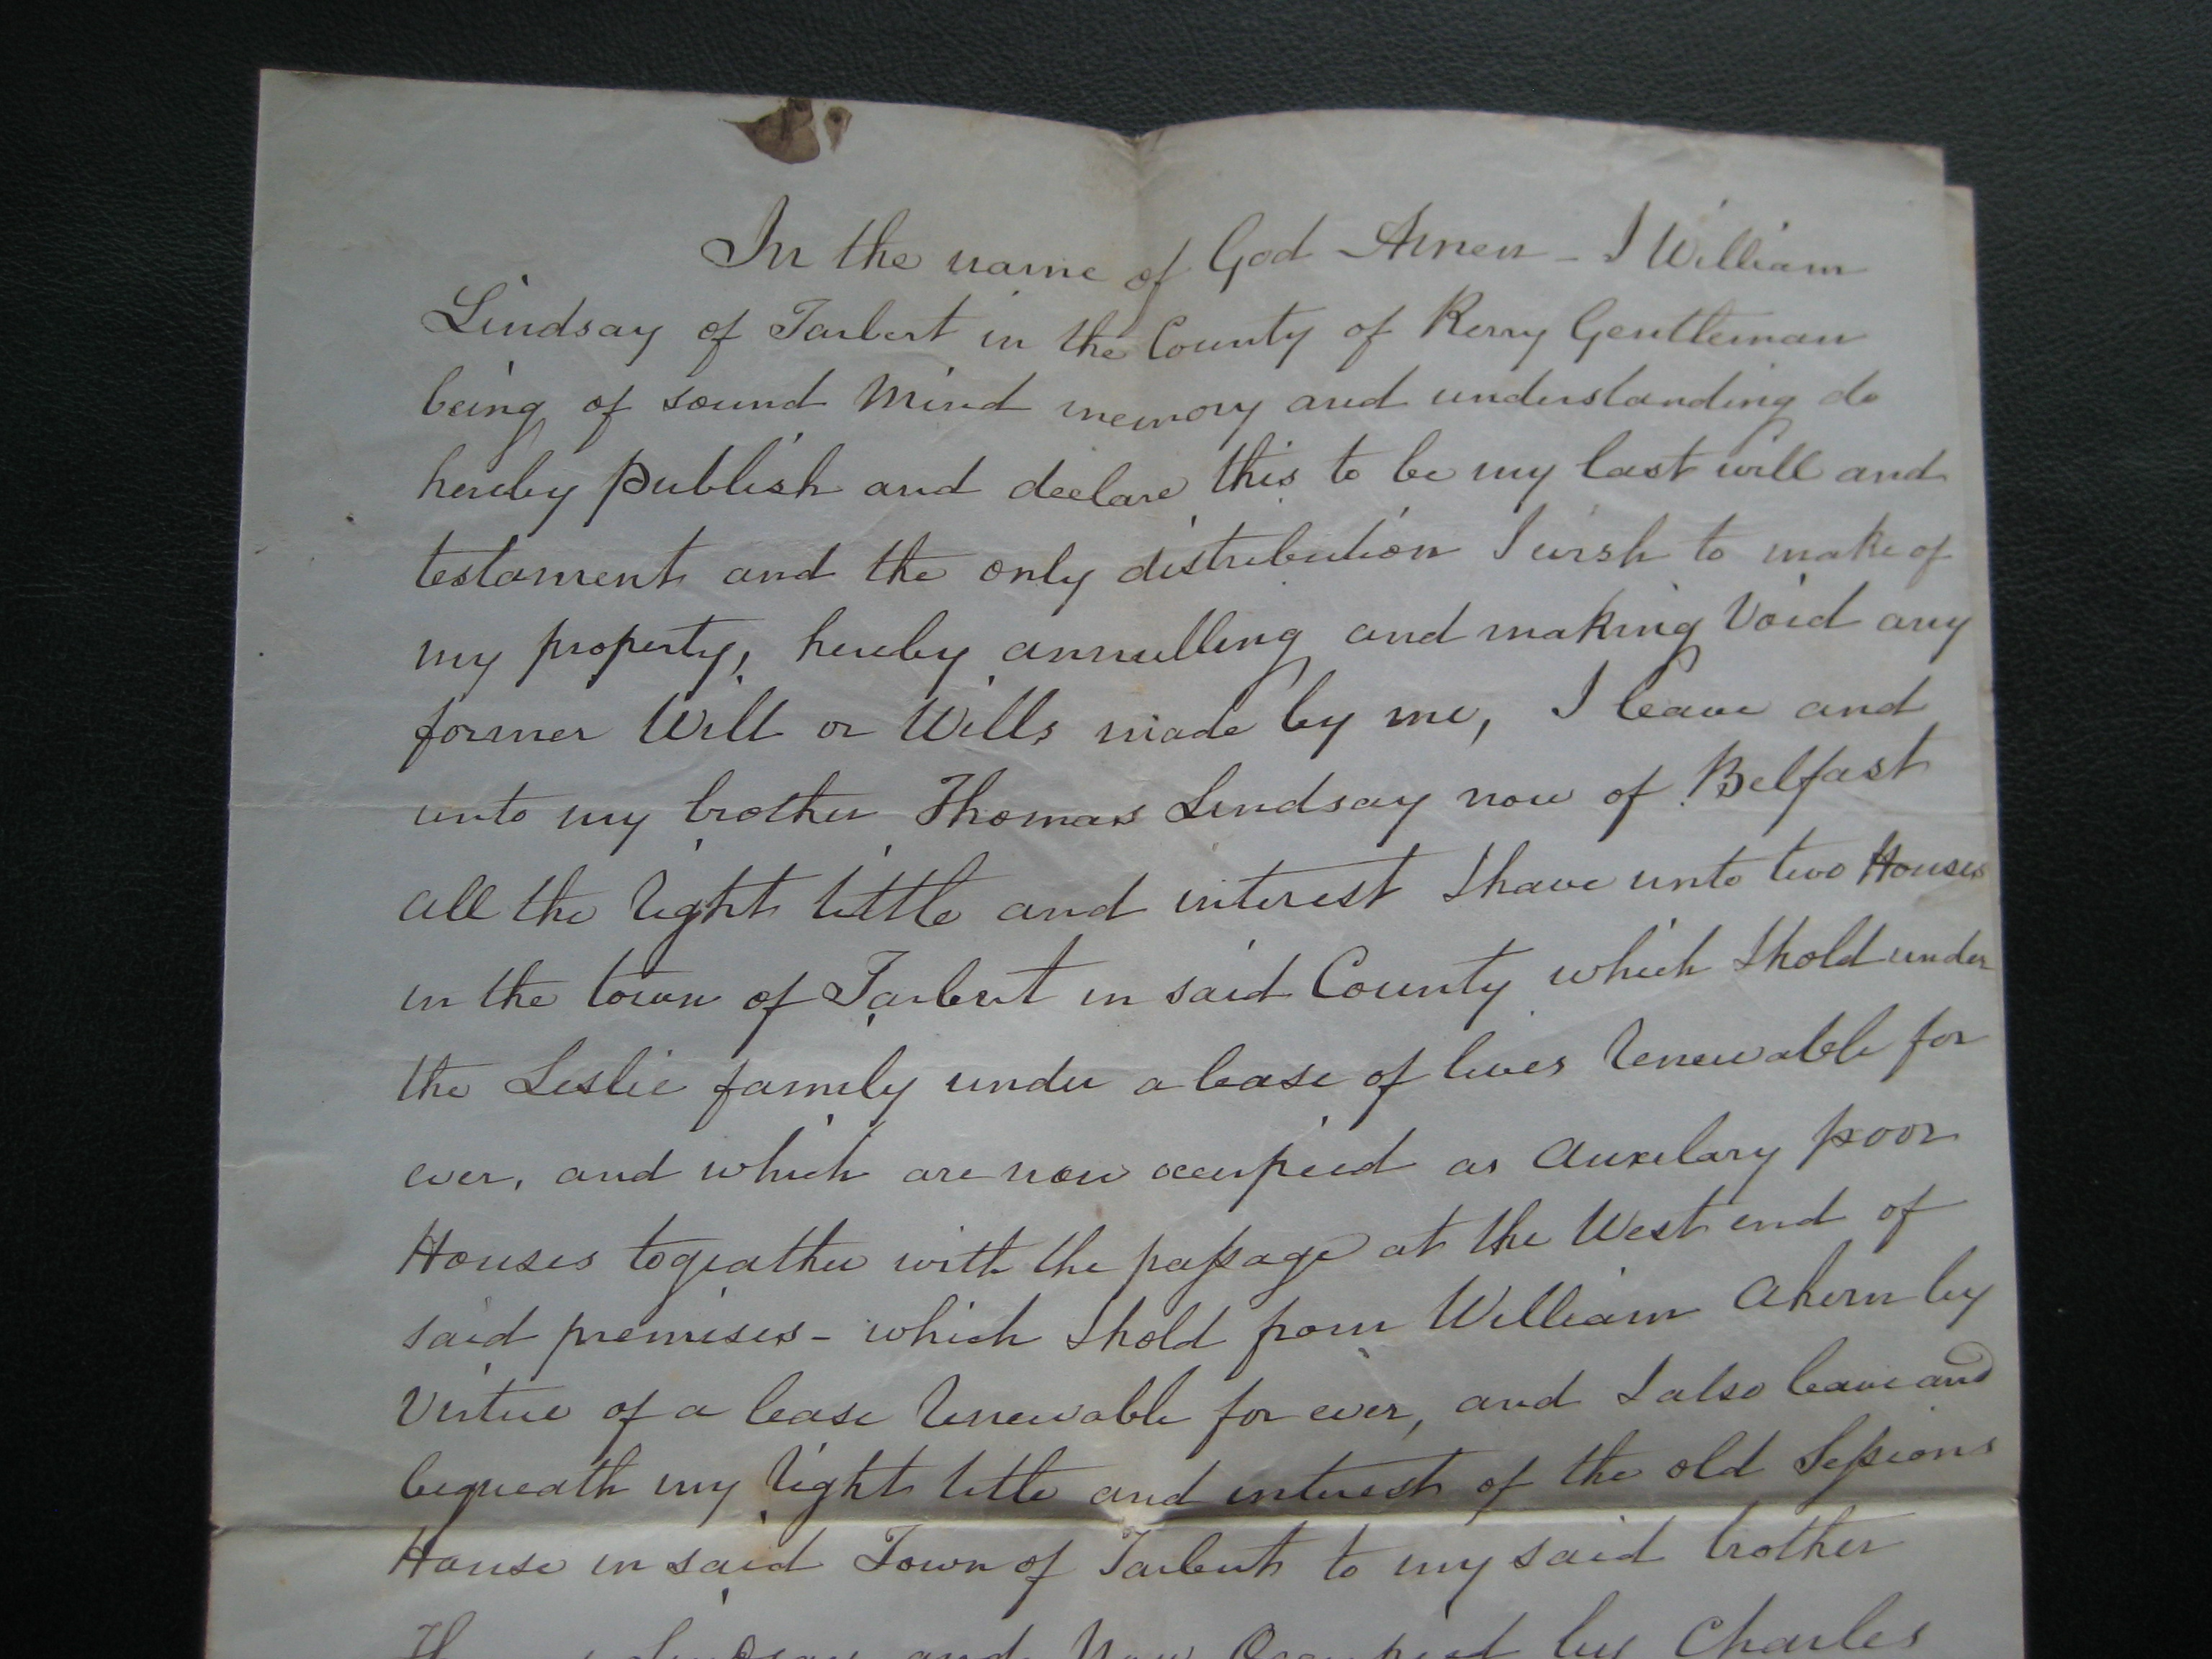 In the name of God Amen - I William
Lindsay of Tarbert in the County of Kerry Gentleman
being of sound Mind memory and understanding do
hereby publish and declare this to be my last will and
testament and the only distribution I wish to make of
my property, hereby annulling and making Void any
former Will or Wills made by me, I leave and
unto my brother Thomas Lindsay now of Belfast
all the right tittle and interest I have unto two Houses
in the town of Tarbert in said County which I hold under
the Leslie family under a lease of lives renewable for
ever, and which are now occupied as Auxilary poor
Houses togeather with the passage at the West end of
said premises - which I hold from William Ahern by
Virtue of a lease renewable for ever, and I also leave and
bequeath my right title and interest of the old Sessions
House in said Town of Tarbert to my said brother
Lindsay and Now Occupied by Charles